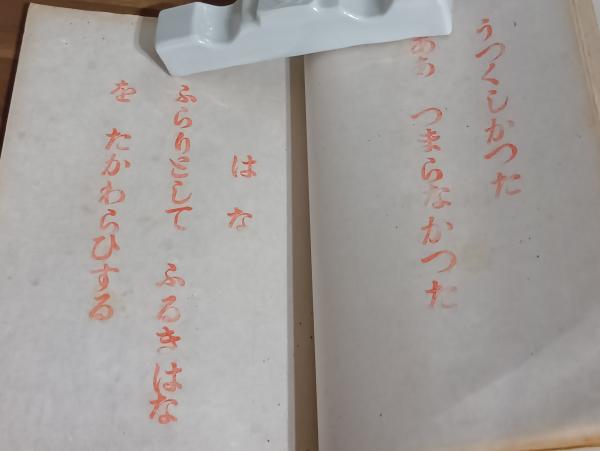 うつくしかつた
あら　つまらなかつた
はな
ふらりとして　ふるきはな
を　たかわらひする